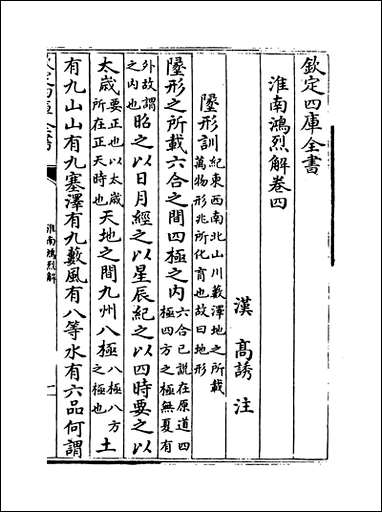 欽定四庫全書
淮南鴻烈解卷四
漢 高誘 注
墬形訓 紀東西南北山川藪澤地之所載萬物形兆所化育也故曰地形
墬形之所載六合之間四極之内 六合已說在原道四極四方之極無夏有
外故謂之内也 昭之以日月經之以星辰紀之以四時要之以
太歲 要正也以太歲所在正天時也 天地之間九州八極 八極八方之極也 土
有九山山有九塞澤有九藪風有八等水有六品何謂
淮南鴻烈解